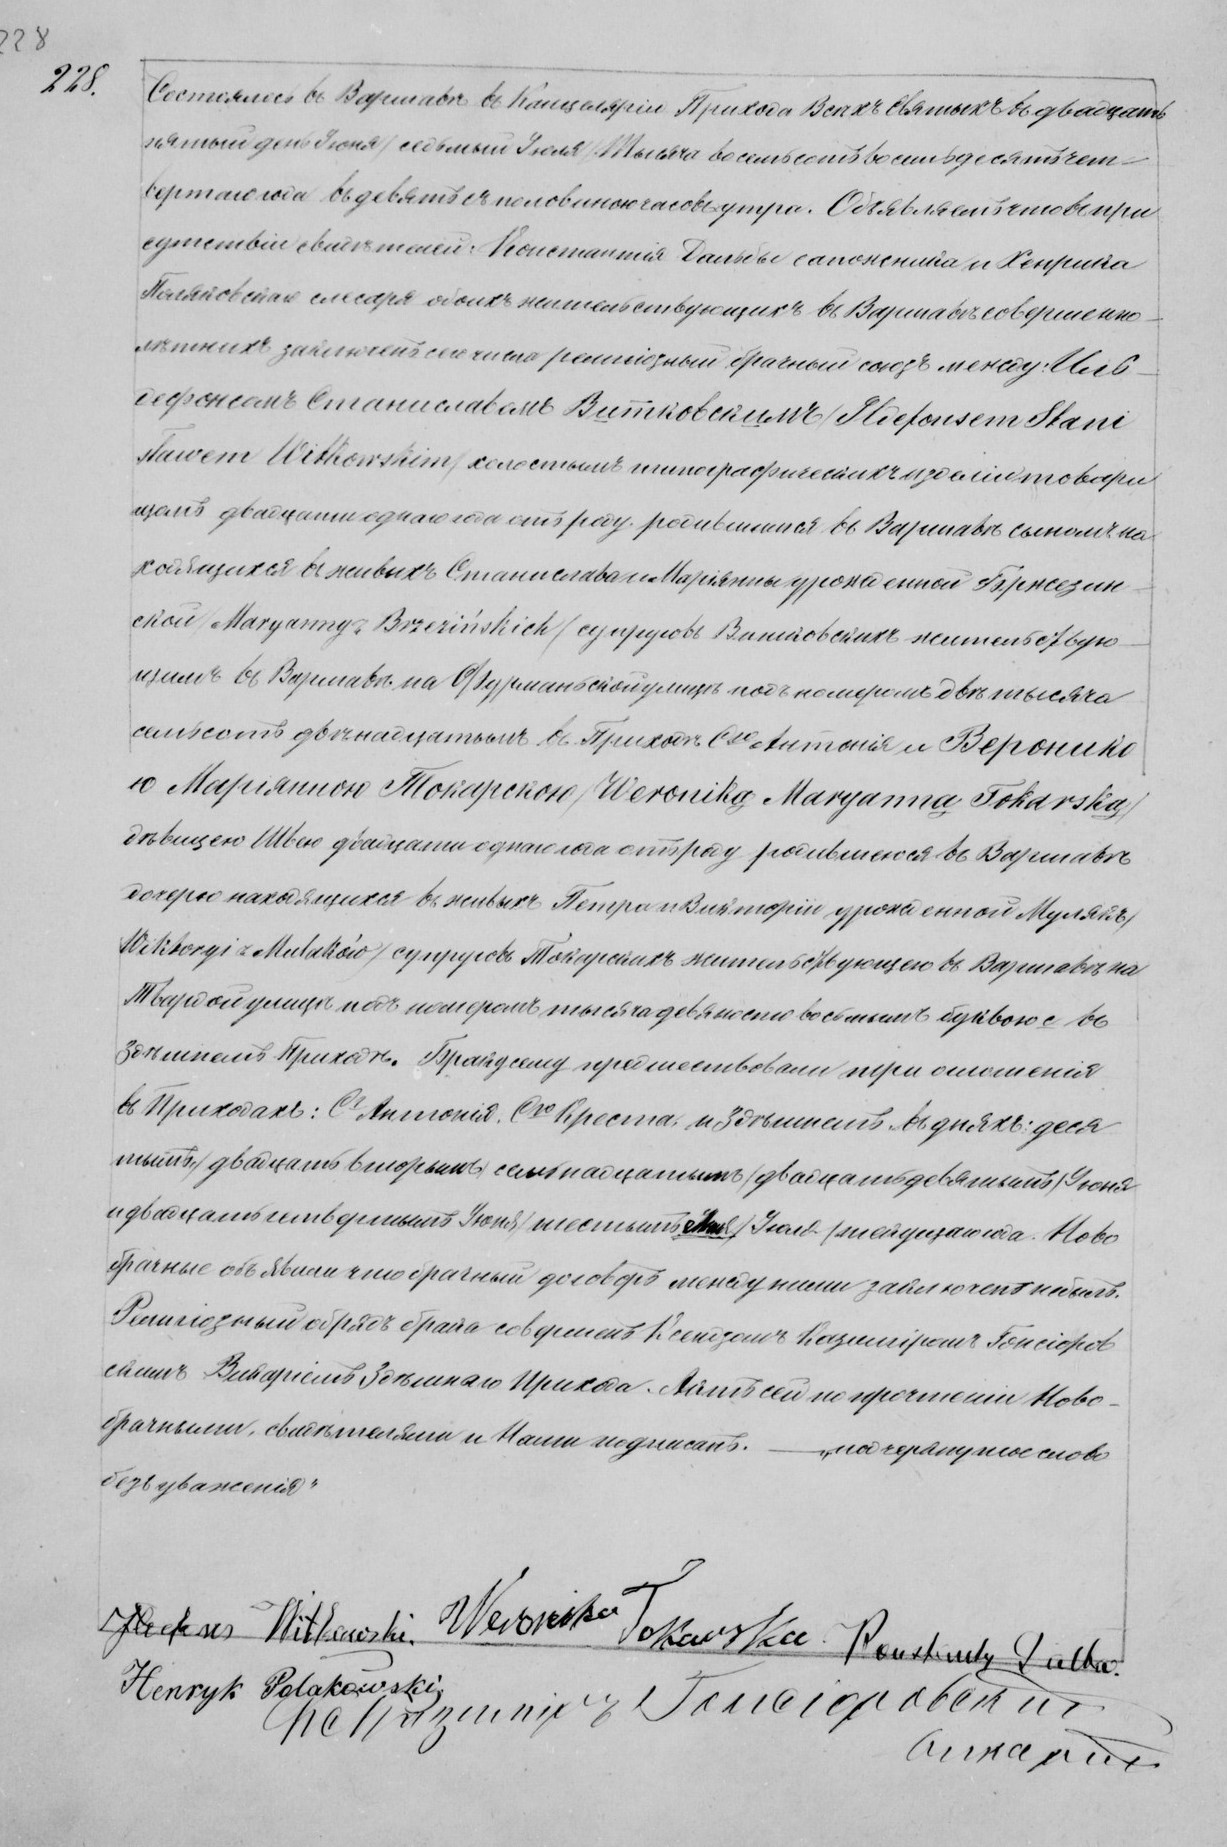 228
228.
Состоялось въ Варшавѣ въ Канцеляріи Прихода Всѣхъ Святыхъ въ двадцать
пятый день Іюня / седьмый Іюля / Тысяча восемьсотъ восемьдесятъ чет-
вертаго года въ девять съ половиною часовъ утра. Объявляемъ что въ при
сутствіи свидѣтелей: Константія Дальбы сапожника и Хенрика
Поляковскаго слесаря обоихъ жительствующихъ въ Варшавѣ совершенно-
лѣтнихъ заключенъ сего числа религіозный брачный союзъ между: Иль-
дефонсомъ Станиславомъ Витковскимъ / Ildefonsem Stani
sławem Witkowskim / холостымъ типографическихъ издѣлій товари
щемъ двадцати одного года отъ роду родившимся въ Варшавѣ сыномъ на
ходящихся въ живыхъ Станислава и Маріянны урожденной Бржезин-
ской / Maryanny z Brzezińskich / супруговъ Витковскихъ жительствую-
щимъ въ Варшавѣ на Фурманьской улицѣ подъ номеромъ двѣ тысяча
семьсотъ двѣнадцатымъ въ Приходѣ Сго Антонія и Вероники
ю Маріянною Токарскою / Weroniką Maryanną Tokarską /
дѣвицею Швею двадцати одного года отъ роду родившеюся въ Варшавѣ
дочерью находящихся въ живыхъ Петра и Викторіи урожденной Мулякъ /
Wiktoryi z Mulaków / супруговъ Токарскихъ жительствующею въ Варшавѣ на
Твардой улицѣ подъ номеромъ тысяча девяносто восьмымъ буквою с въ
Здѣшнемъ Приходѣ. Браку сему предшествовали три оглашенія
въ Приходахъ: Сго Антонія, Сго Креста, и Здѣшнемъ въ дняхъ: деся
тымъ / двадцать вторымъ / семнадцатымъ / двадцать девятымъ / Іюня
и двадцать четвертымъ Іюня / шестымъ / Іюля / текущаго года. Ново
брачные объявили что брачный договоръ между ними заключенъ небылъ.
Религіозный обрядъ брака совершенъ Ксендзомъ Казиміромъ Гонсіоров
скимъ Викаріемъ Здѣшняго Прихода. Актъ сей по прочтеніи Ново-
брачными, свидѣтелями и Нами подписанъ. — „подчеркнутое слово
безъ уваженія"
Ildefons Witkowski. Weronika Tokarska. Konstanty Dalba.
Henryk Polakowski
Кс Казиміръ Гонсіоровскій
викарій